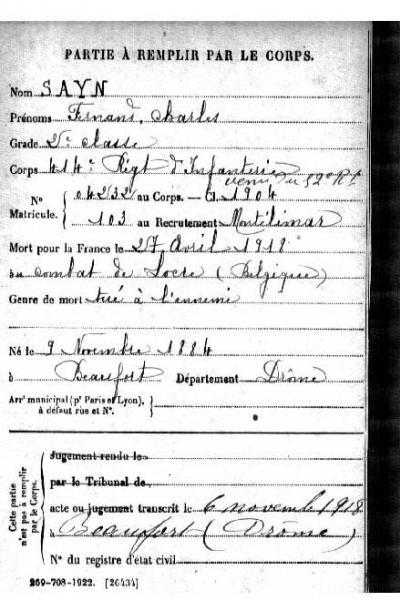 PARTIE À REMPLIR PAR LE CORPS.
Nom SAYN
Prénoms Fernand, Charles
Grade 2e classe
Corps 414e Régt d'Infanterie
venu du 52e Rt
No Matricule. { 04232 au Corps. — Cl. 1904
103 au Recrutement Montélimar
Mort pour la France le 27 Avril 1918
au combat de Locre (Belgique)
Genre de mort tué à l'ennemi
Né le 9 Novembre 1884
à Beaufort Département Drôme
Arrt municipal (pr Paris et Lyon), à défaut rue et No. }
Cette partie n'est pas à remplir par le Corps.
Jugement rendu le
par le Tribunal de
acte ou jugement transcrit le 6 novemb 1918
à Beaufort (Drôme)
No du registre d'état civil
269-708-1922. [26434]